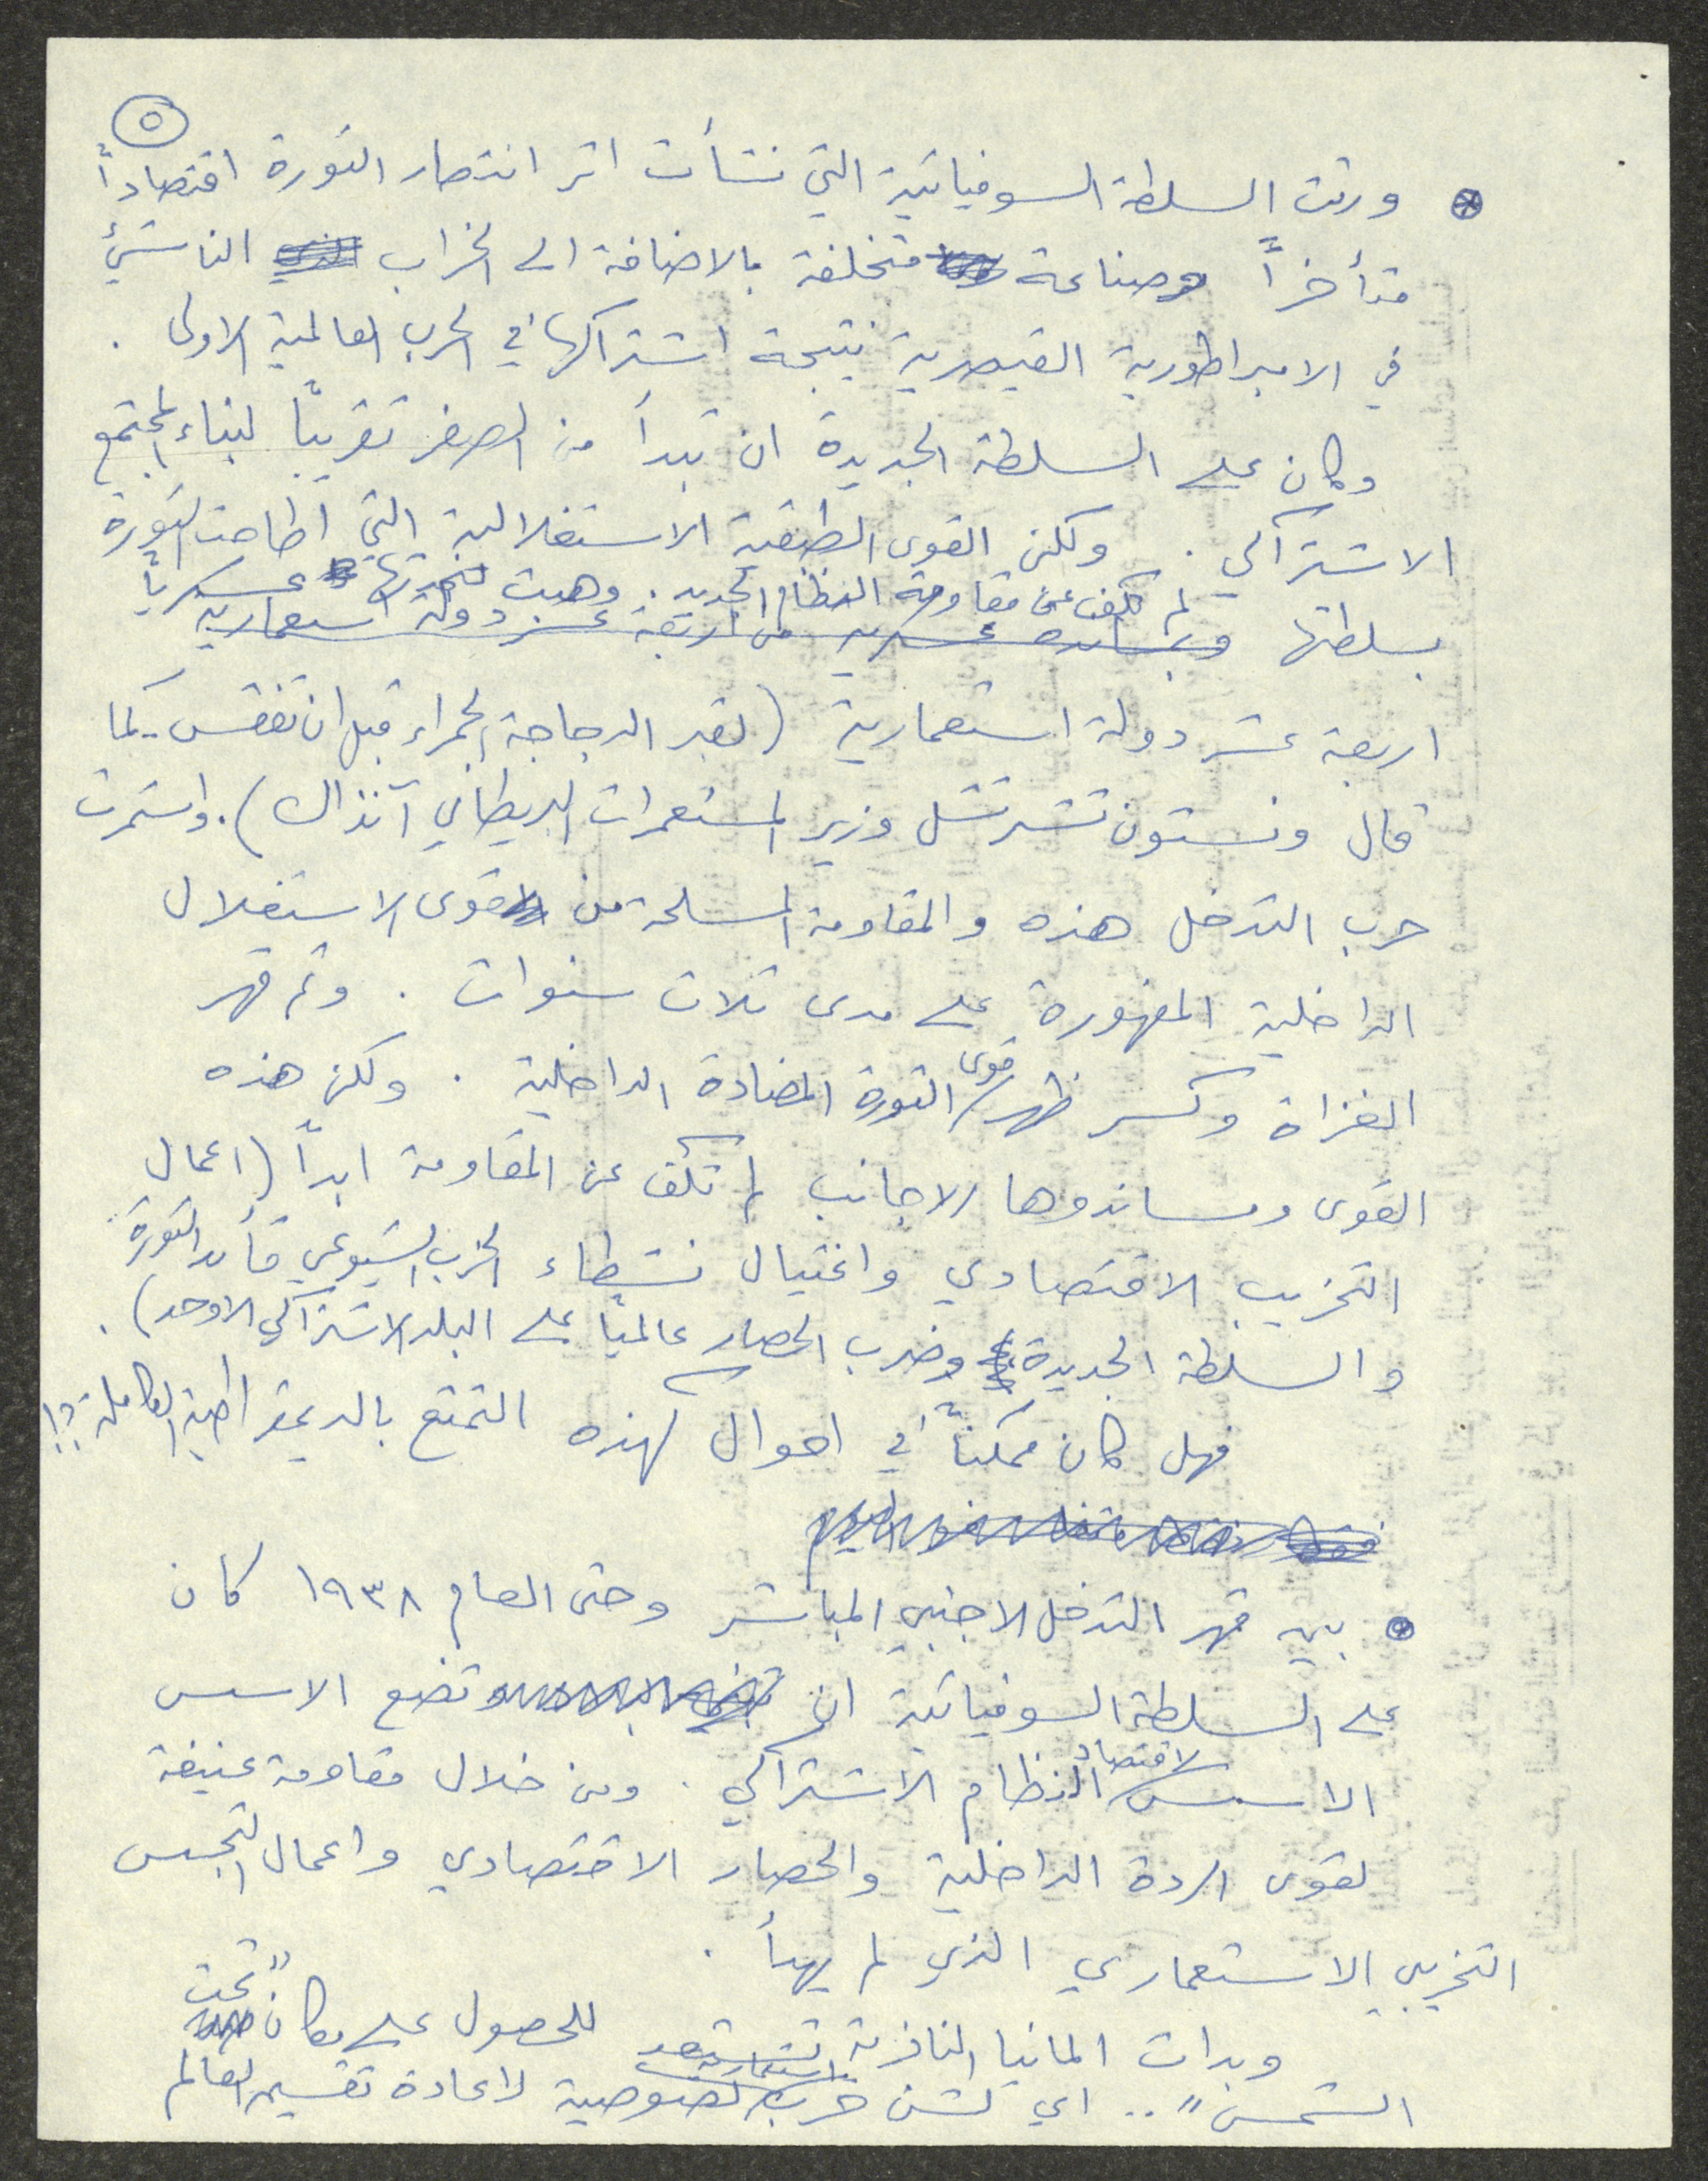 ٥
ورثت السلطة السوفياتية التي نشأت اثر انتصار الثورة اقتصاداً
متأخراً وصناعة متخلفة بالاضافة الى الخراب الناشئ
في الامبراطورية القيصرية نتيجة اشتراكها في الحرب العالمية الاولى .
وكان على السلطة الجديدة ان تبدأ من الصفر تقريباً لبناء المجتمع
الاشتراكي . ولكن القوى الطبقية الاستغلالية التي اطاحت الثورة
بسلطتها لم تكف عن مقاومة النظام الجديد . وهبت لنجدتها عسكرياً
وبمساندة عسكرية من اربعة عشر دولة استعمارية
اربعة عشر دولة استعمارية (لقبر الدجاجة الحمراء قبل ان تفقس - كما
قال ونستون تشرتشل وزير المستعمرات البريطاني آنذاك) . واستمرت
حرب التدخل هذه والمقاومة المسلحة من قوى الاستغلال
الداخلية المقهورة على مدى ثلاث سنوات . وتم قهر
الغزاة وكسر ظهر قوى الثورة المضادة الداخلية . ولكن هذه
القوى ومساندوها الاجانب لم تكف عن المقاومة ابداً (اعمال
التخريب الاقتصادي واغتيال نشطاء الحزب الشيوعي قائد الثورة
والسلطة الجديدة وضرب الحصار عالمياً على البلد الاشتراكي الاوحد) .
فهل كان ممكناً في احوال كهذه التمتع بالديمقراطية الكاملة ؟!
بين قهر التدخل الاجنبي المباشر وحتى العام ١٩٣٨ كان
على السلطة السوفياتية ان تضع الاسس
الاسس لاقتصاد النظام الاشتراكي . ومن خلال مقاومة عنيفة
لقوى الردة الداخلية والحصار الاقتصادي واعمال التجسس
التخريبي الاستعماري الذي لم يهدأ .
وبدات المانيا النازية تستعد للحصول على مكان "تحت
الشمس" .. اي لشن حرب استعمارية لصوصية لاعادة تقسيم العالم